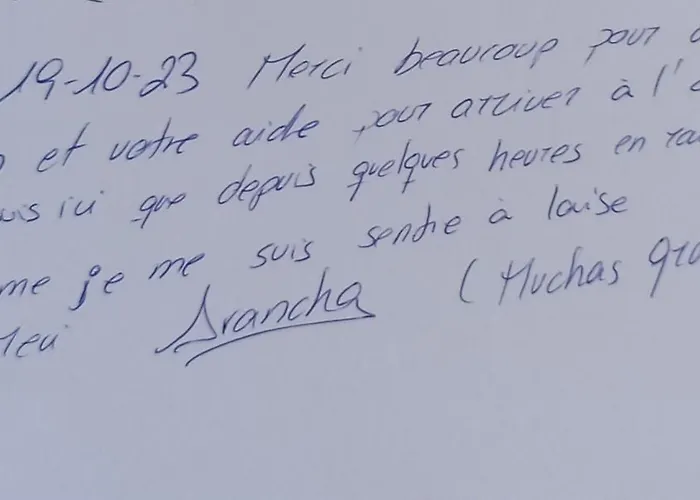 19-10-23 Merci beaucoup pour
et votre aide pour arriver à l'
ici que depuis quelques heures en
me je me suis sentie à laise
Arancha (Muchas